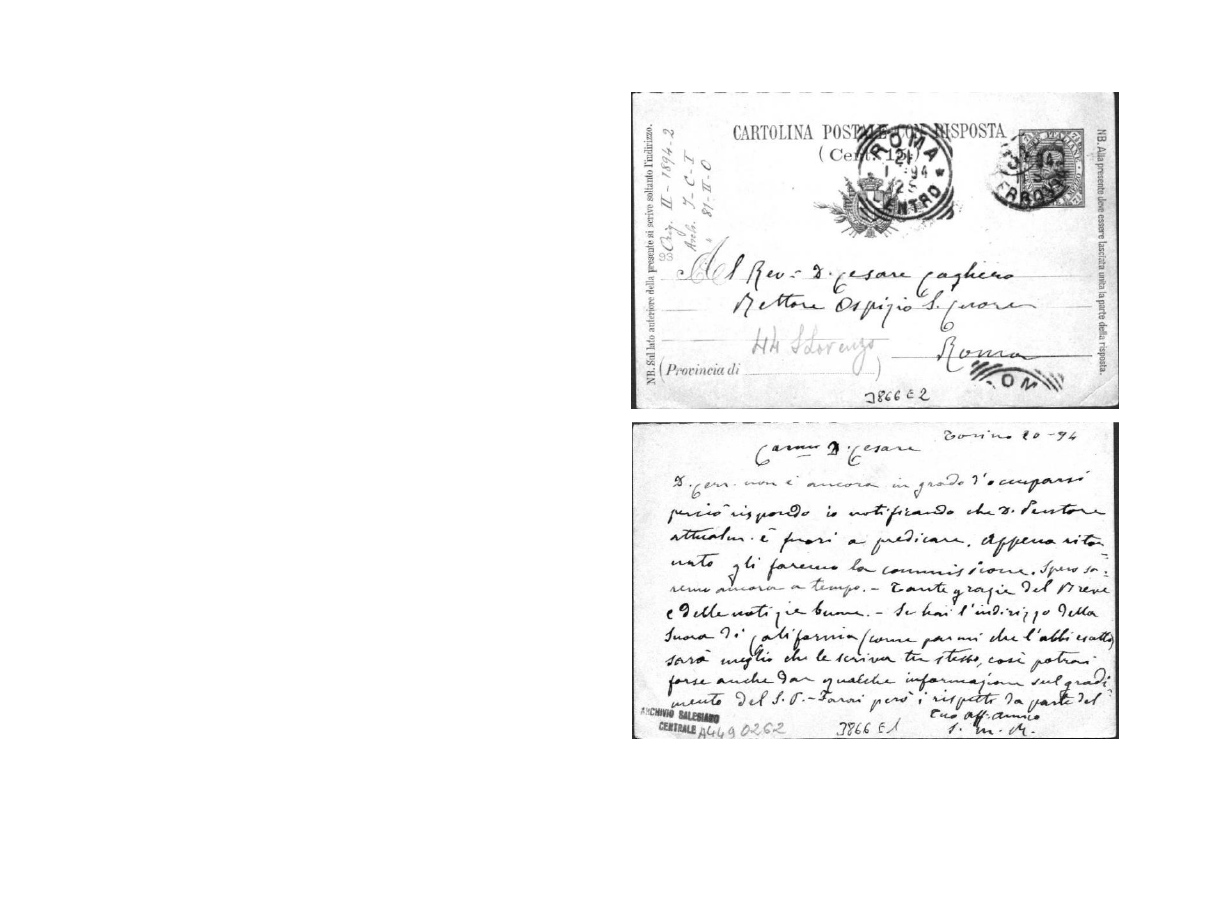 CARTOLINA POSTALE CON RISPOSTA
(Cent. 15)
NB. Sul lato anteriore della presente si scrive soltanto l'indirizzo.
NB. Alla presente deve essere lasciata unita la parte della risposta.
Orig. II - 1894-2
Arch. J-C-I
81-II-0
93
ROMA
1-94
CENTRO
FERROVIA
Al Rev. D. Cesare Cagliero
Rettore Ospizio S. Cuore
44 S Lorenzo
Roma
(Provincia di )
3866 E 2
Torino 20-94
Carmo D. Cesare
D. Cerr. non è ancora in grado d'occuparsi
perciò rispondo io notificando che D. Pentore
attualm. è fuori a predicare. Appena ritor=
nato gli faremo la commissione. Spero sa=
remo ancora a tempo. - Tante grazie del Breve
e delle notizie buone. - Se hai l'indirizzo della
Suora di California (come parmi che l'abbi esatto)
sarà meglio che le scriva tu stesso, così potrai
forse anche dar qualche informazione sul gradi=
mento del S. P. - Farai però i rispetti da parte del
Tuo aff. amico
S. M. R.
ARCHIVIO SALESIANO
CENTRALE
A4490262
3866 E1